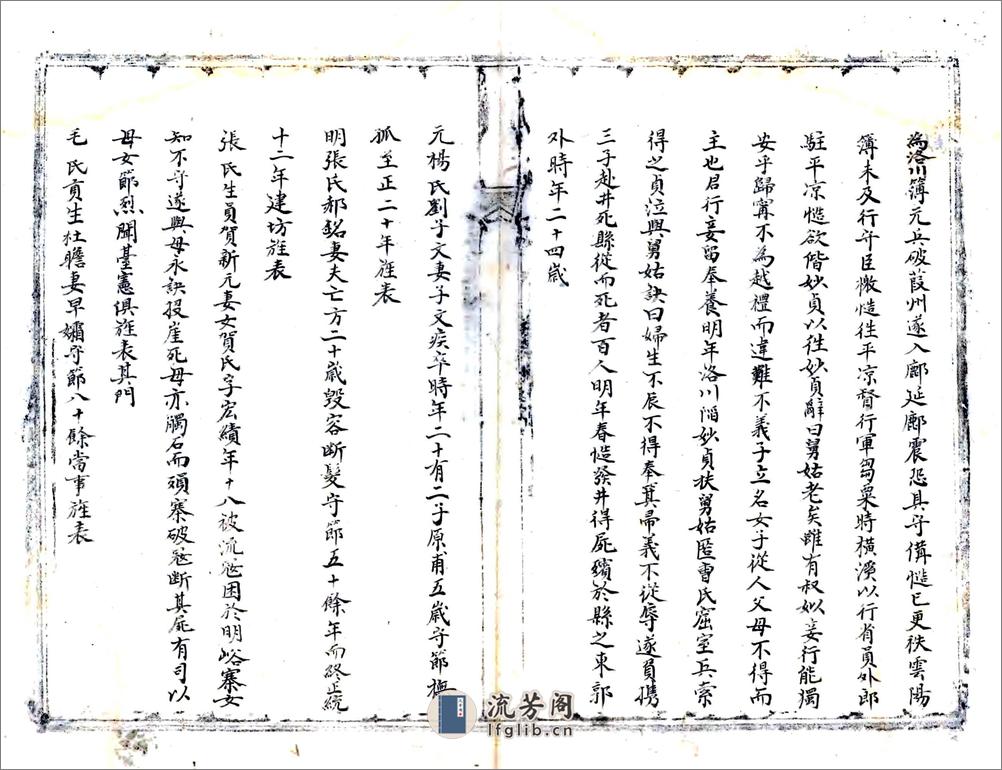 為洛川簿元兵破葭州遂入鄜延鄜震恐具守備慥已更秩雲陽
簿未及行守臣檄慥往平凉督行軍芻粟時橫溪以行省員外郎
駐平凉慥欲偕妙貞以往妙貞辭曰舅姑老矣雖有叔姒妾行能獨
安乎歸寗不為越禮而違難不義子立名女子從人父母不得而
主也君行妾留奉養明年洛川陷妙貞扶舅姑匿曹氏窟室兵索
得之貞泣與舅姑訣曰婦生不辰不得奉箕帚義不從辱遂員携
三子赴井死縣從而死者百人明年春慥發井得屍殯於縣之東郭
外時年二十四歲
元楊氏劉子文妻子文疾卒時年二十有二子原甫五歲守節撫
孤至正二十年旌表
明張氏郝銘妻夫亡方二十歲毀容断髮守節五十餘年而終正統
十二年建坊旌表
張氏生員賀新元妻女賀氏字宏績年十八被流寇困於明峪寨女
知不守遂與母永訣投崖死母亦觸石而頭寨破寇断其屍有司以
母女節烈聞臺憲俱旌表其門
毛氏貢生杜瞻妻早孀守節八十餘當事旌表
流芳阁
lfglib.cn